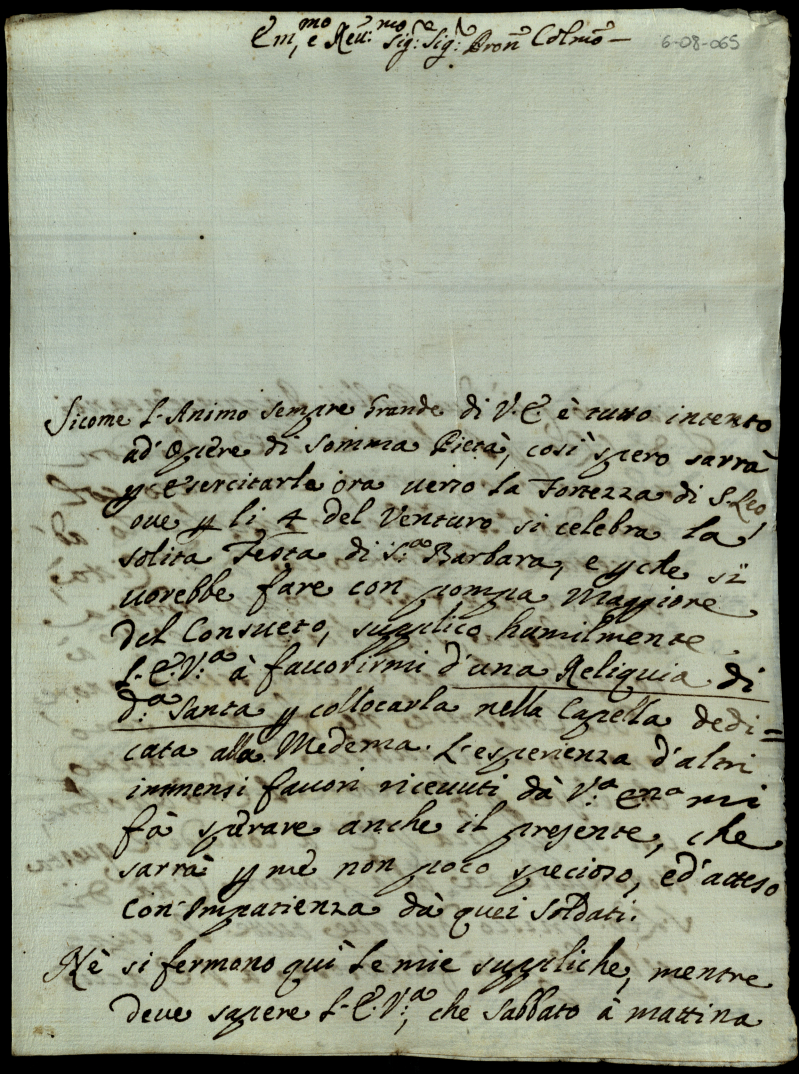 Em.mo e Rev.mo Sig.re Sig.r Pron Colmo
6-08-065
Sicome l'Animo sempre Grande di V.E. è tutto intento
ad' opere di somma Pietà, così spero sarrà
p esercitarle ora verso la Fortezza di S. Leo,
ove p li 4 del Venturo si celebra la
solita Festa di S.ta Barbara, e pche si
vorebbe fare con pompa Maggiore
del Consueto, supplico humilmente
l'E.V.a à favorirmi d'una Reliquia di
d.a Santa p collocarla nella Capella dedi=
cata alla Medema. L'esperienza d'altri
immensi favori ricevuti dà V.a Em.a mi
fà sperare anche il presente, che
sarrà p me non poco specioso, ed' atteso
con Impatienza dà quei soldati.
Nè si fermono quì le mie suppliche, mentre
deve sapere l'E.V.a, che Sabbato à mattina